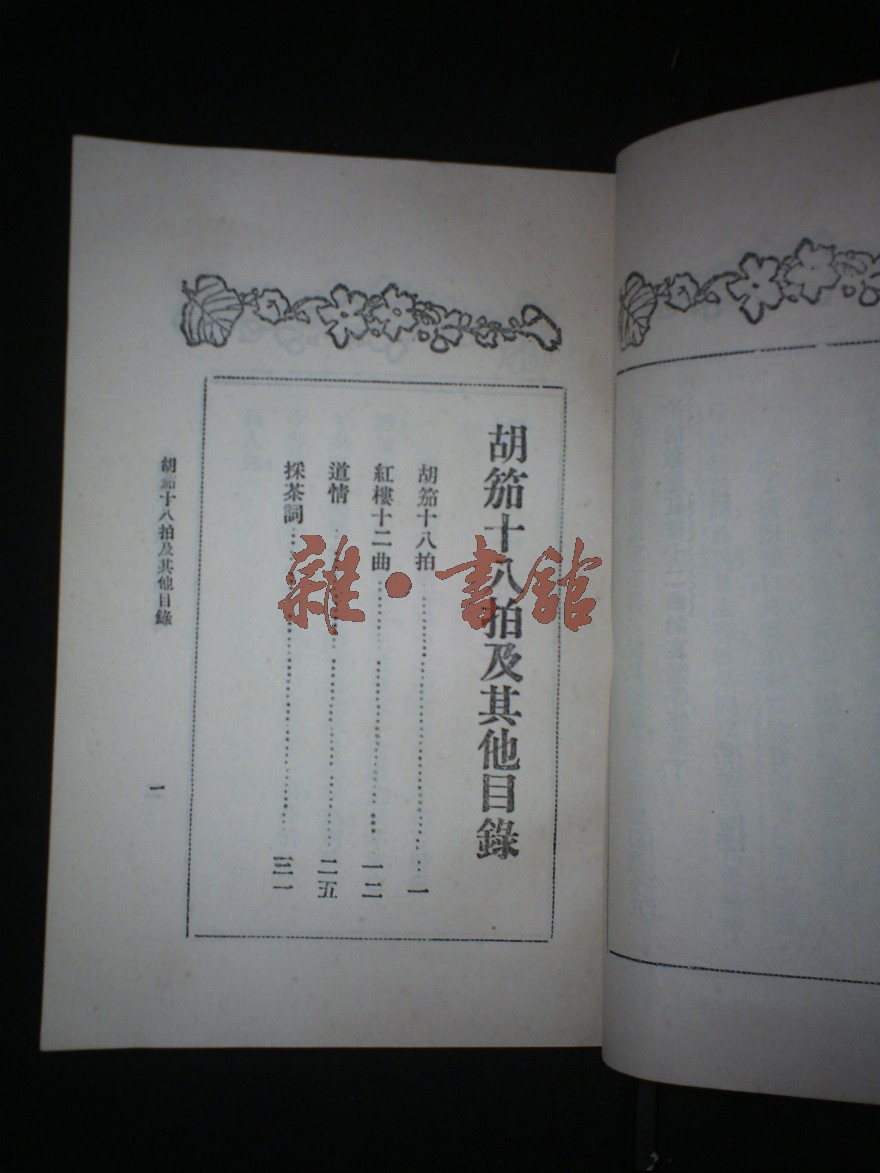 胡笳十八拍及其他目錄
胡笳十八拍……一
紅樓十二曲……一二
道情……二五
採茶詞……三一
胡笳十八拍及其他目錄
一
雜·書館